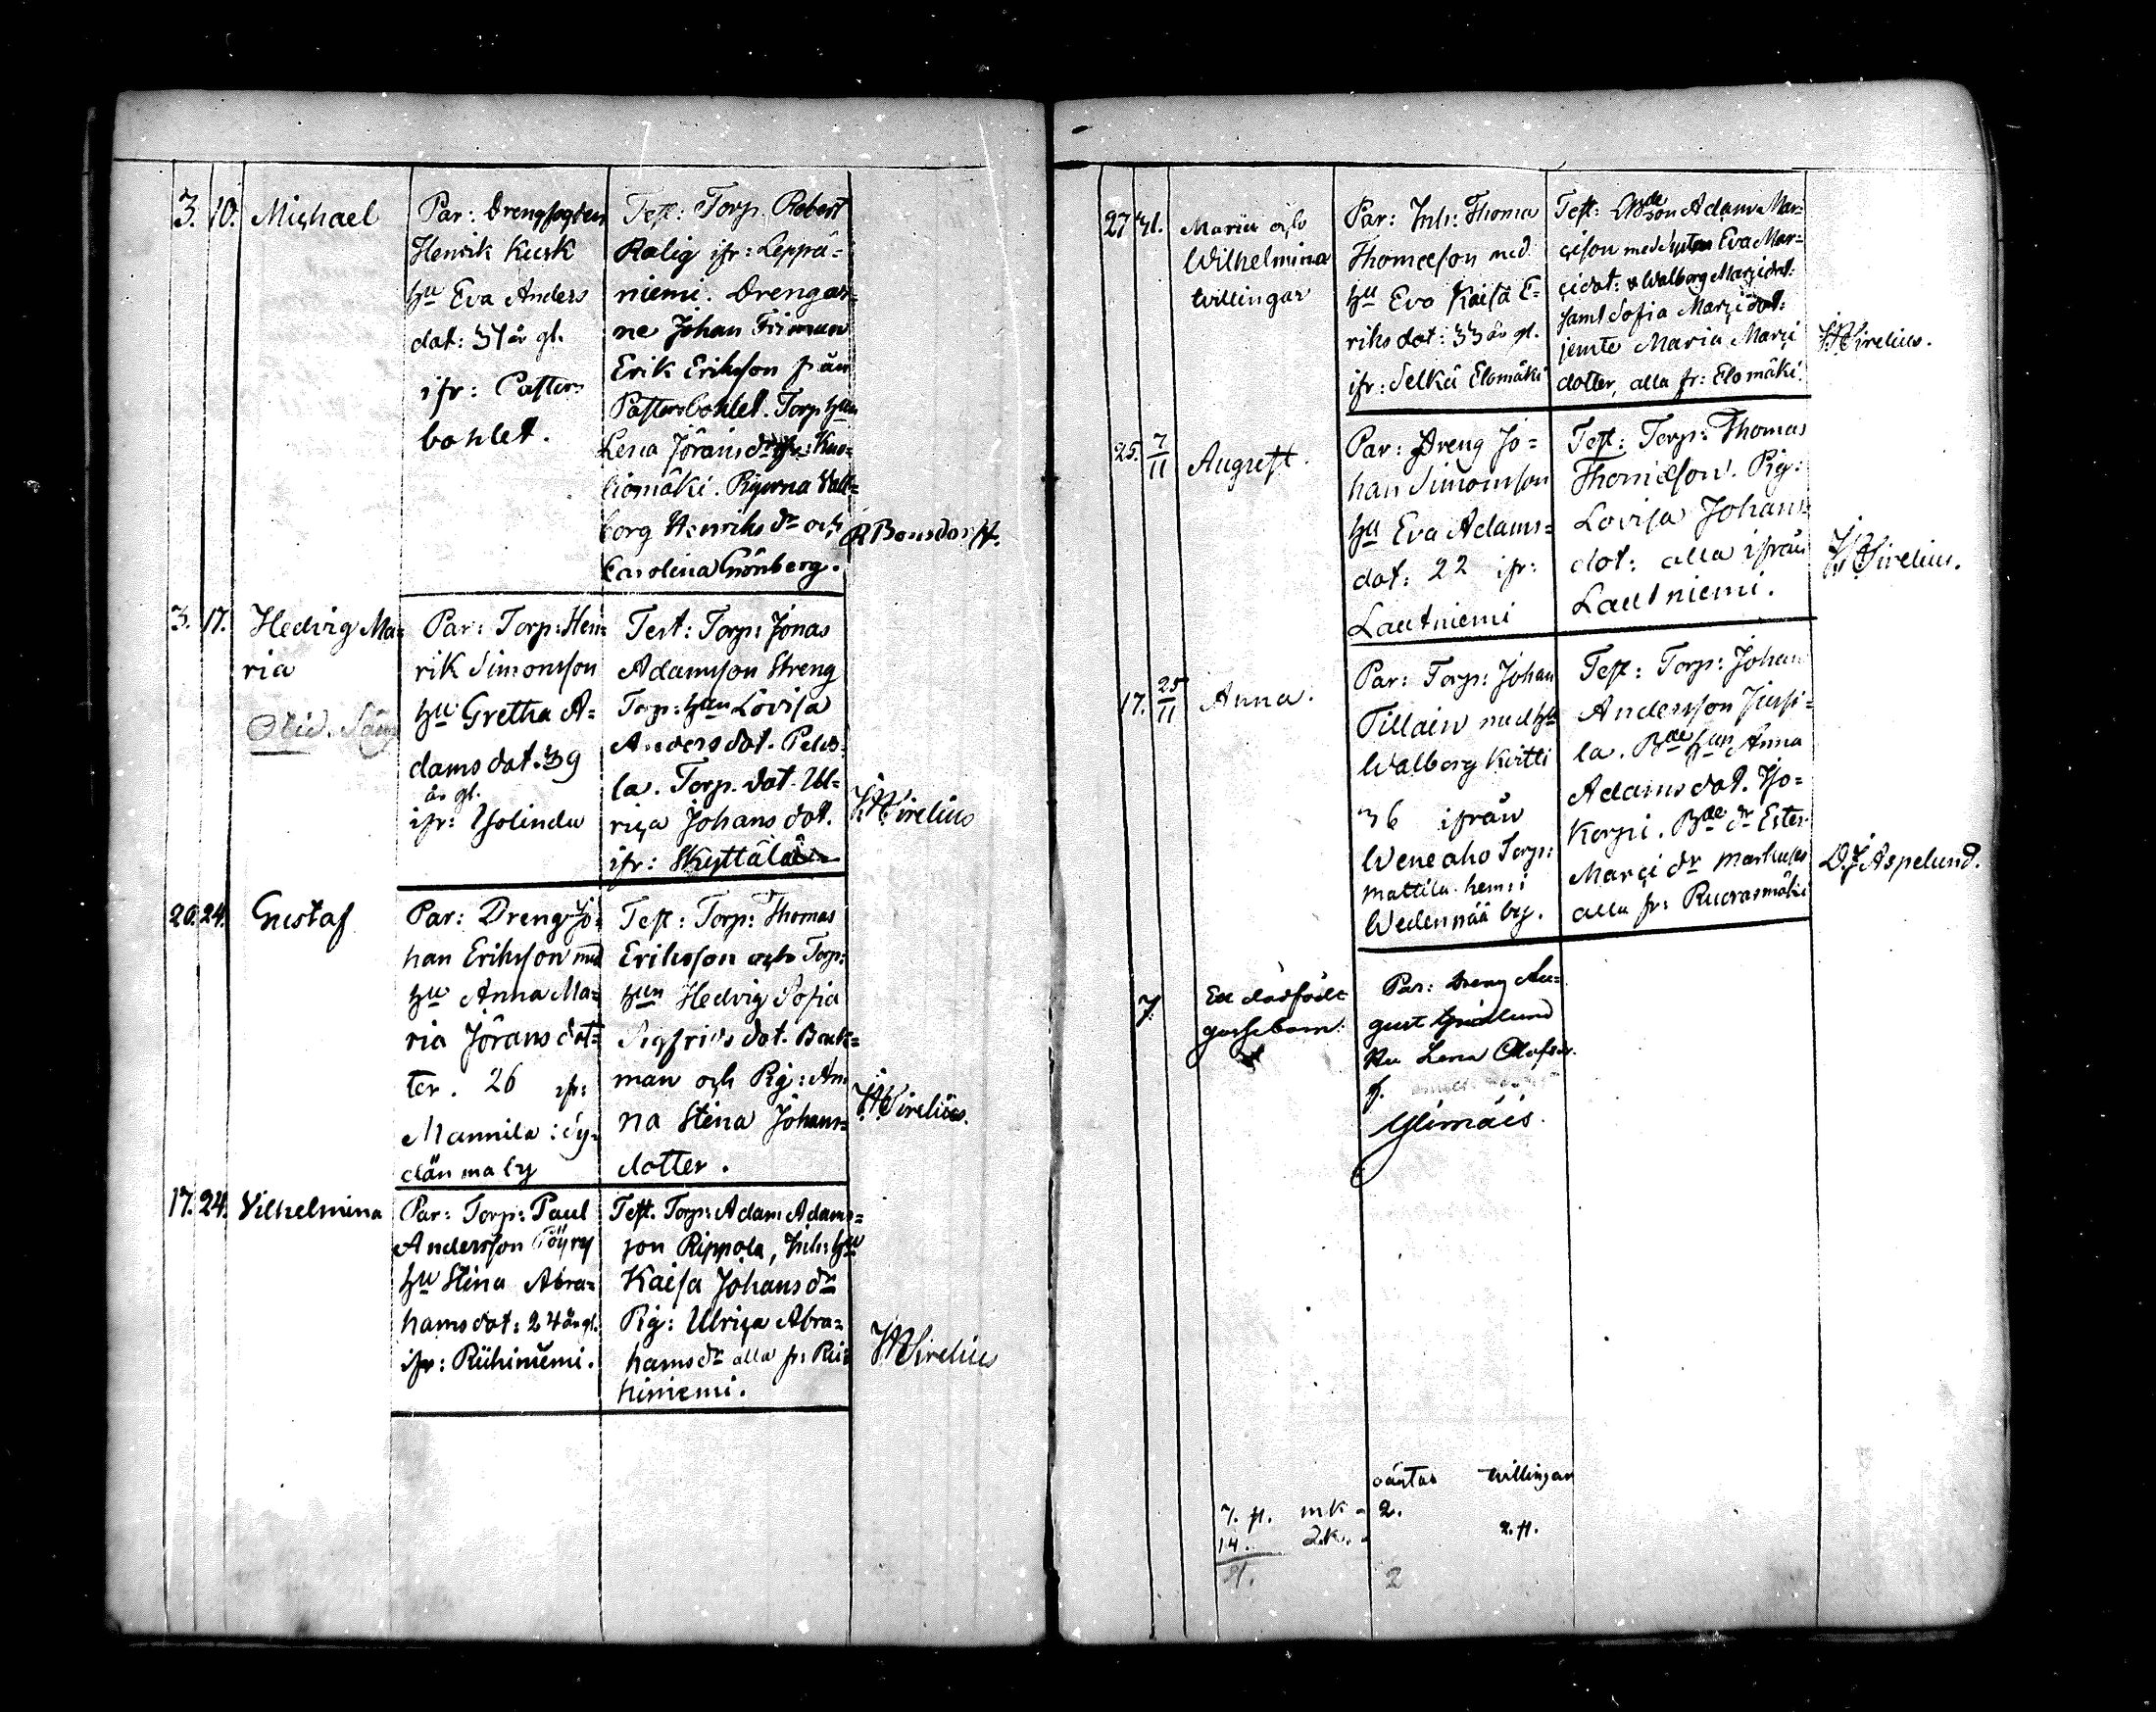 3. 10. Michael
Par: Drengfogden
Henrik Kusk
hu Eva Anders
dat: 37 år gl.
ifr: Pastors
bohlet.
Test: Torp. Robert
Ralig ifr: Leppä=
niemi. Drengar=
ne Johan Friman
Erik Eriksson från
Pastorsbohlet. Torp hun
Lena Jöransdr ifr: Kal=
liomäki. Pigorna Vall=
borg Henriksdr och
Carolina Grönberg.
R Bonsdorff.
3. 17. Hedvig Ma=
ria
Par: Torp: Hen=
rik Simonsson
hu Gretha A=
damsdat. 39
år gl.
ifr: Tjolinda
Test: Torp: Jonas
Adamsson Streng
Torp: hun Lovisa
Andersdot. Pelto=
la. Torp. dot. Ul=
rica Johansdot.
ifr: Skyttälä
Sirelius
20. 24. Gustaf
Par: Dreng Jo=
han Eriksson med
hu Anna Ma=
ria Jöransdot=
ter. 26 ifr:
Mannila: Sy=
dänma by
Test: Torp: Thomas
Eriksson och Torp:
hun Hedvig Sofia
Sigfridsdot. Back=
man och Pig: An=
na Stina Johans=
dotter.
Sirelius.
17. 24. Vilhelmina
Par: Torp: Paul
Andersson Pöyry
hu Stina Abra=
hamsdot: 24 år gl.
ifr: Riihiniemi.
Test. Torp: Adam Adams=
son Rippola, Inh: hu
Kaisa Johansdr
Pig: Ulrica Abra=
hamsdr alla fr: Rii=
hiniemi.
Sirelius
27 31. Maria och
Wilhelmina
tvillingar
Par: Inh: Thomas
Thomasson med
hu Eva Kaisa E=
riksdot: 33 år gl.
ifr: Selkä Elomäki
Test: Bdeson Adam Mar=
cison med systern Eva Mar=
cidot: Walborg Marcidot:
samt Sofia Marcidot:
jemte Maria Marci
dotter, alla fr: Elomäki.
Sirelius.
25. 7/11 August.
Par: Dreng Jo=
han Simonsson
hu Eva Adams=
dot: 22 ifr:
Lautniemi
Test: Torp: Thomas
Thomasson. Pig:
Lovisa Johans=
dot: alla ifrån
Lautniemi.
Sirelius.
17. 25/11 Anna.
Par: Torp: Johan
Tillain med hu
Walborg Kitti
36 ifrån
Weneaho Torp:
Mattila hem: i
Wedenpää by.
Test: Torp: Johan
Andersson Jussi=
la. Bde hun Anna
Adamsdot. Iso=
Korpi. Bde dr Ester
Marci dr Markuses
alla fr: Ruorasmäki
D J Aspelund.
7. Ett dödfödt
gossebarn:
Par: Dreng Au=
gust
hu Lena Olofsdr.
f.
Ylimäis.
oäktas tvillingar
7. fl. mk - 2.
14. qk. - 2. fl.
21. 2